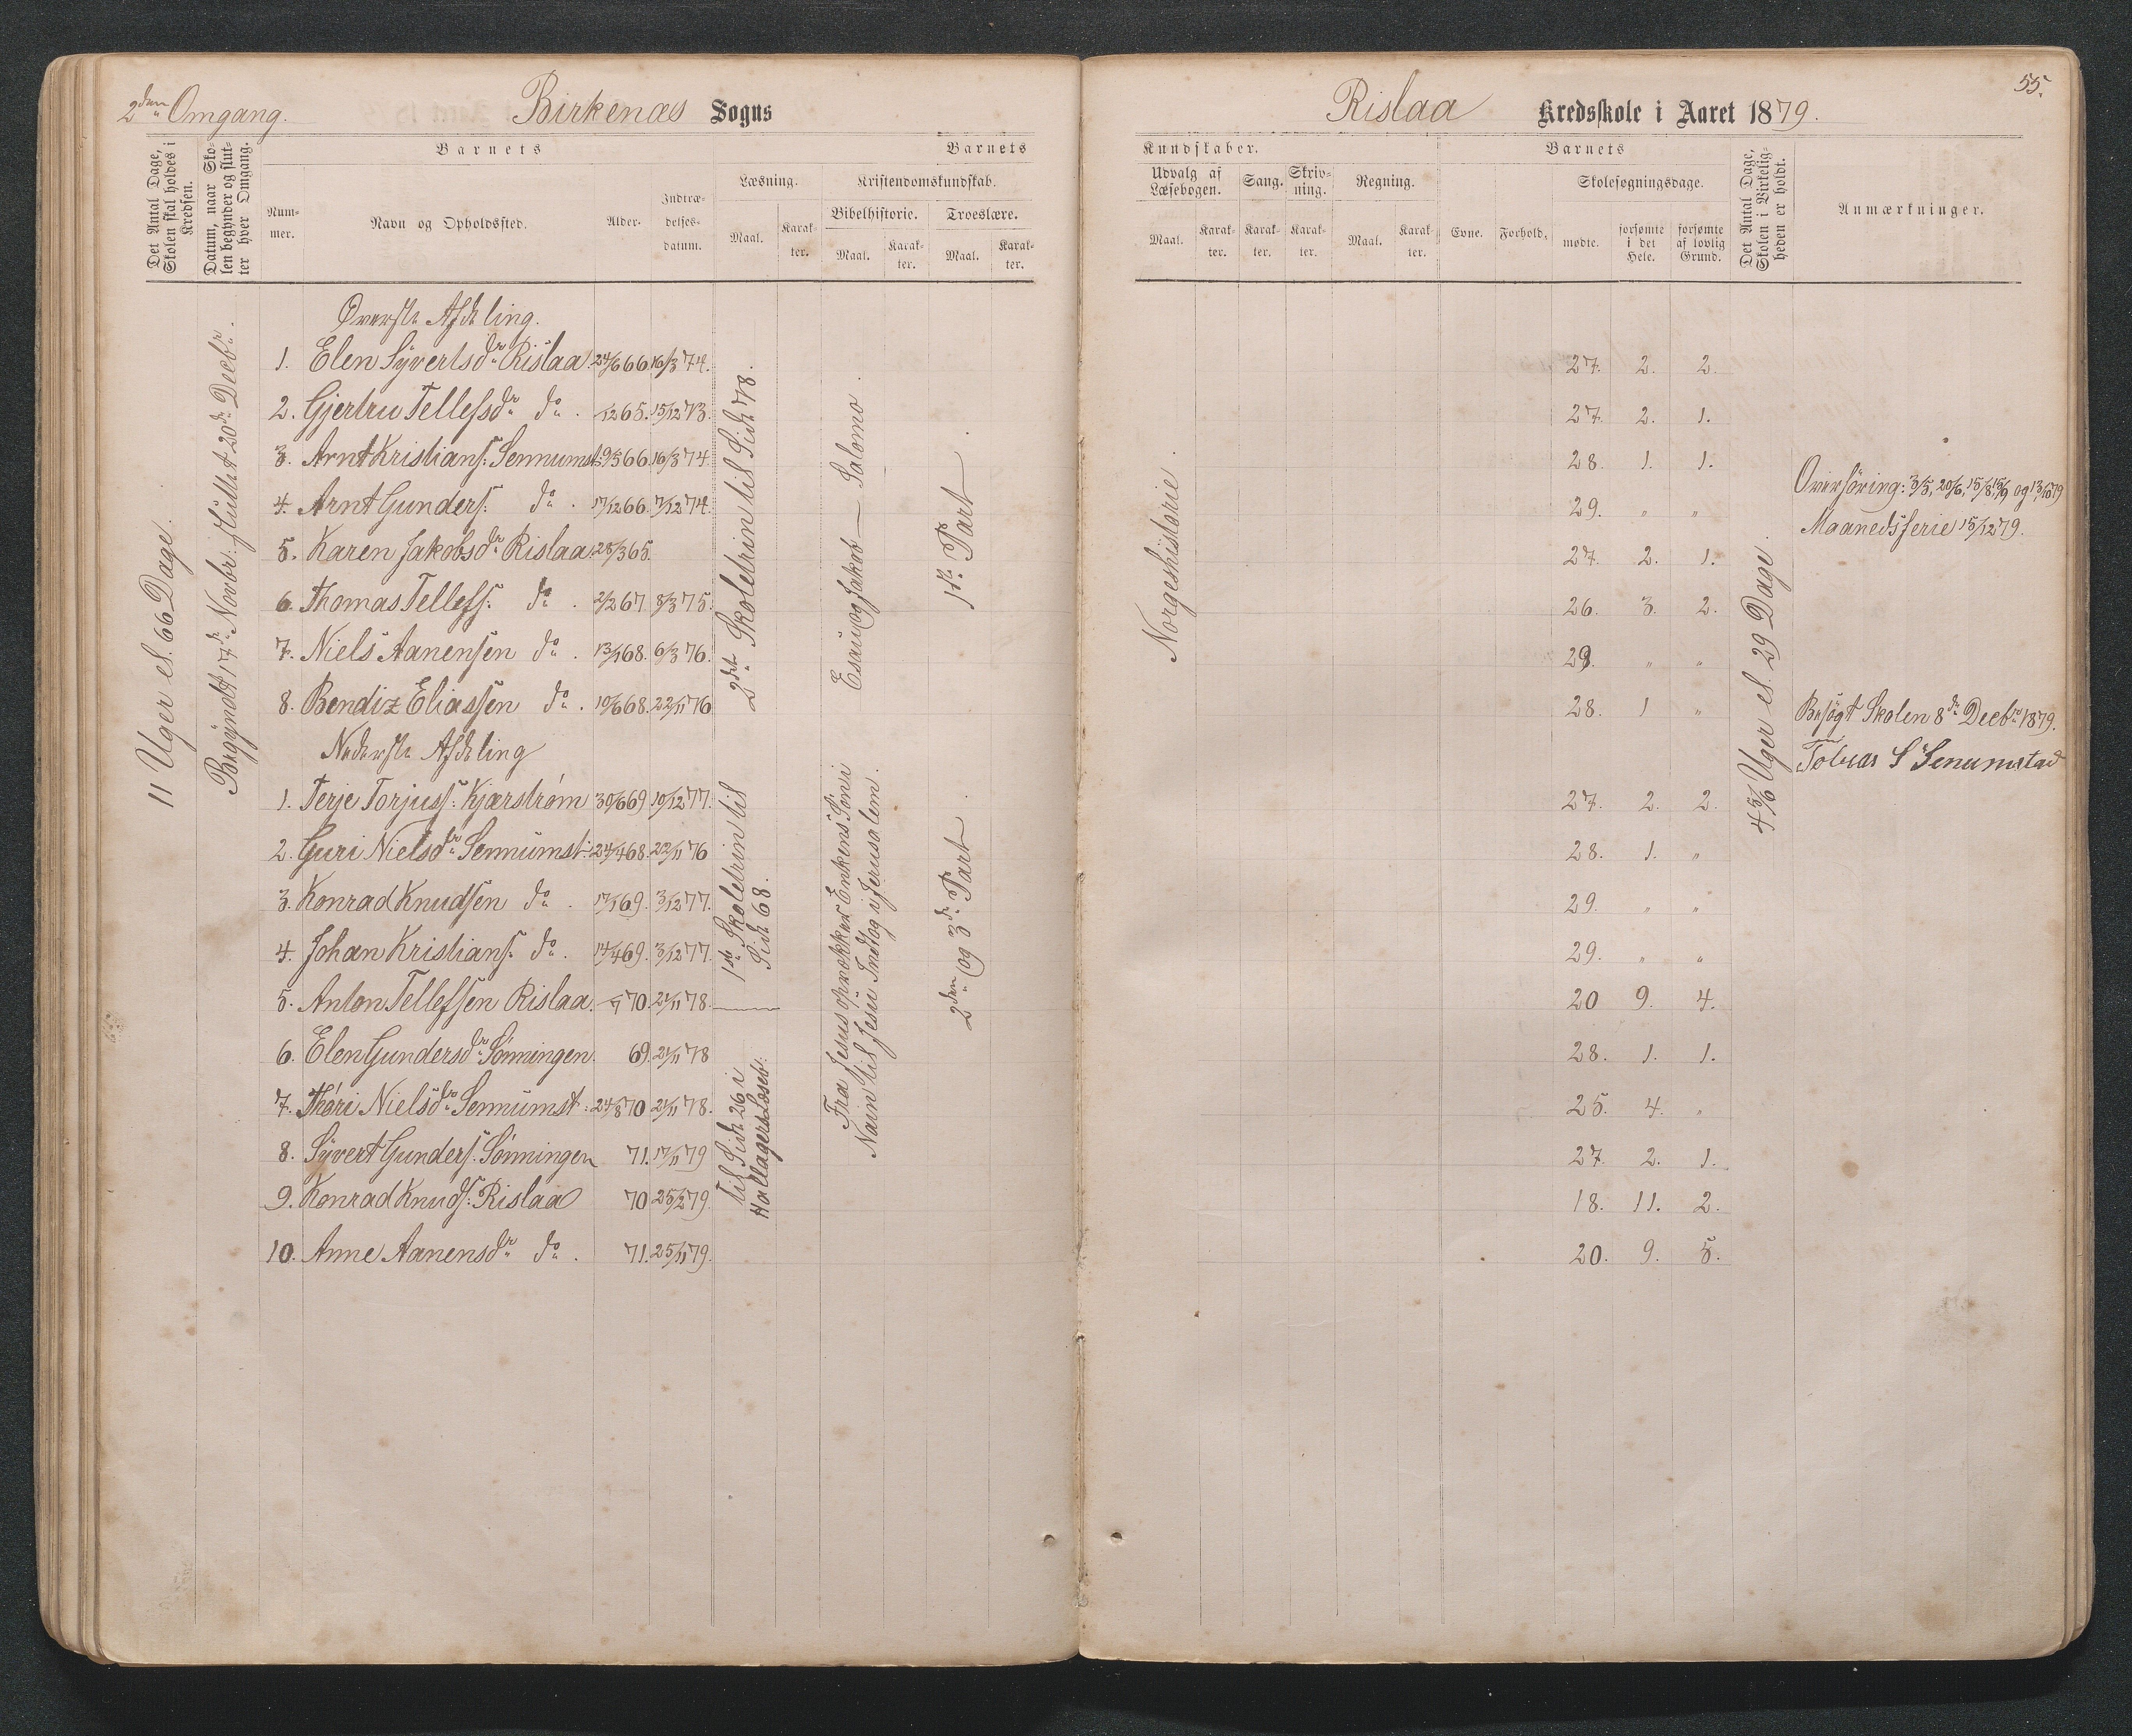 2den Omgang.
Birkenæs Sogns
Det Antal Dage, Skolen skal holdes i Kredsen.
Datum, naar Skolen begynder og slutter hver Omgang.
Barnets
Barnets
Nummer.
Navn og Opholdssted.
Alder.
Indtrædelsesdatum.
Læsning.
Kristendomskundskab.
Bibelhistorie.
Troeslære.
Maal.
Karakter.
Maal.
Karakter.
Maal.
Karakter.
11 Uger el. 66 Dage.
Begyndt 17de Novbr. sluttet 20de Decbr.
Øverste Afdeling.
1. Elen Syvertsdr Rislaa 24/6 66 16/3 74.
2. Gjertru Tellefsdr do. /12 65. 15/12 73.
3. Arnt Kristians: Sennumst. 9/5 66. 16/3 74.
4. Arnt Gunders: do. 17/12 66. 7/12 74.
5. Karen Jakobsdr Rislaa 28/3 65.
6. Thomas Tellefs: do. 2/2 67. 8/3 75.
7. Niels Aanensen do. 13/1 68. 6/3 76.
8. Bendiz Eliassen do. 10/6 68. 22/11 76
Nederste Afdeling
1. Terje Torjuss: Kjærstrøm 30/6 69 10/12 77.
2. Guri Nielsdr Sennumst: 24/4 68. 22/11 76
3. Konrad Knudsen do. 17/1 69. 3/12 77.
4. Johan Kristians: do. 14/4 69. 3/12 77.
5. Anton Tellefsen Rislaa. /7 70. 21/11 78.
6. Elen Gundersdr Sønningen. 69. 21/11 78
7. Thøri Nielsdr Sennumst: 24/8 70 21/11 78.
8. Syvert Gunders: Sønningen 71. 17/11 79
9. Konrad Knuds: Rislaa 70 25/2 79.
10. Anne Aanensdr do. 71. 25/11 79.
2det Skoletrin til Side 78.
1ste Skoletrin til
Side 68.
til Side 26 i
Hallagers Læseb.
Esau og Jakob — Salomo.
Fra Jesus opvækker Enkens Søn i
Nain til Jesu Indtog i Jerusalem.
1ste Part.
2den og 3de Part.
55.
Rislaa Kredsskole i Aaret 1879.
Kundskaber.
Barnets
Udvalg af Læsebogen.
Sang.
Skrivning.
Regning.
Skolesøgningsdage.
Maal.
Karakter.
Karakter.
Karakter.
Maal.
Karakter.
Evne.
Forhold.
mødte.
forsømte i det Hele.
forsømte af lovlig Grund.
Det Antal Dage, Skolen i Virkeligheden er holdt.
Anmærkninger.
Norgeshistorie.
27. 2. 2.
27. 2. 1.
28. 1. 1.
29. " "
27. 2. 1.
26. 3. 2.
29. " "
28. 1 "
27. 2. 2.
28. 1. "
29. " "
29. " "
20 9. 4.
28. 1. 1.
25. 4. "
27. 2. 1.
18. 11. 2.
20. 9. 5.
4 5/6 Uger el. 29 Dage.
Overføring: 3/5, 20/6, 15/8, 15/9 og 13/10 79
Maanedsferie 15/12 79.
Besøgt Skolen 8de Decbr 1879.
Tobias S Senumstad